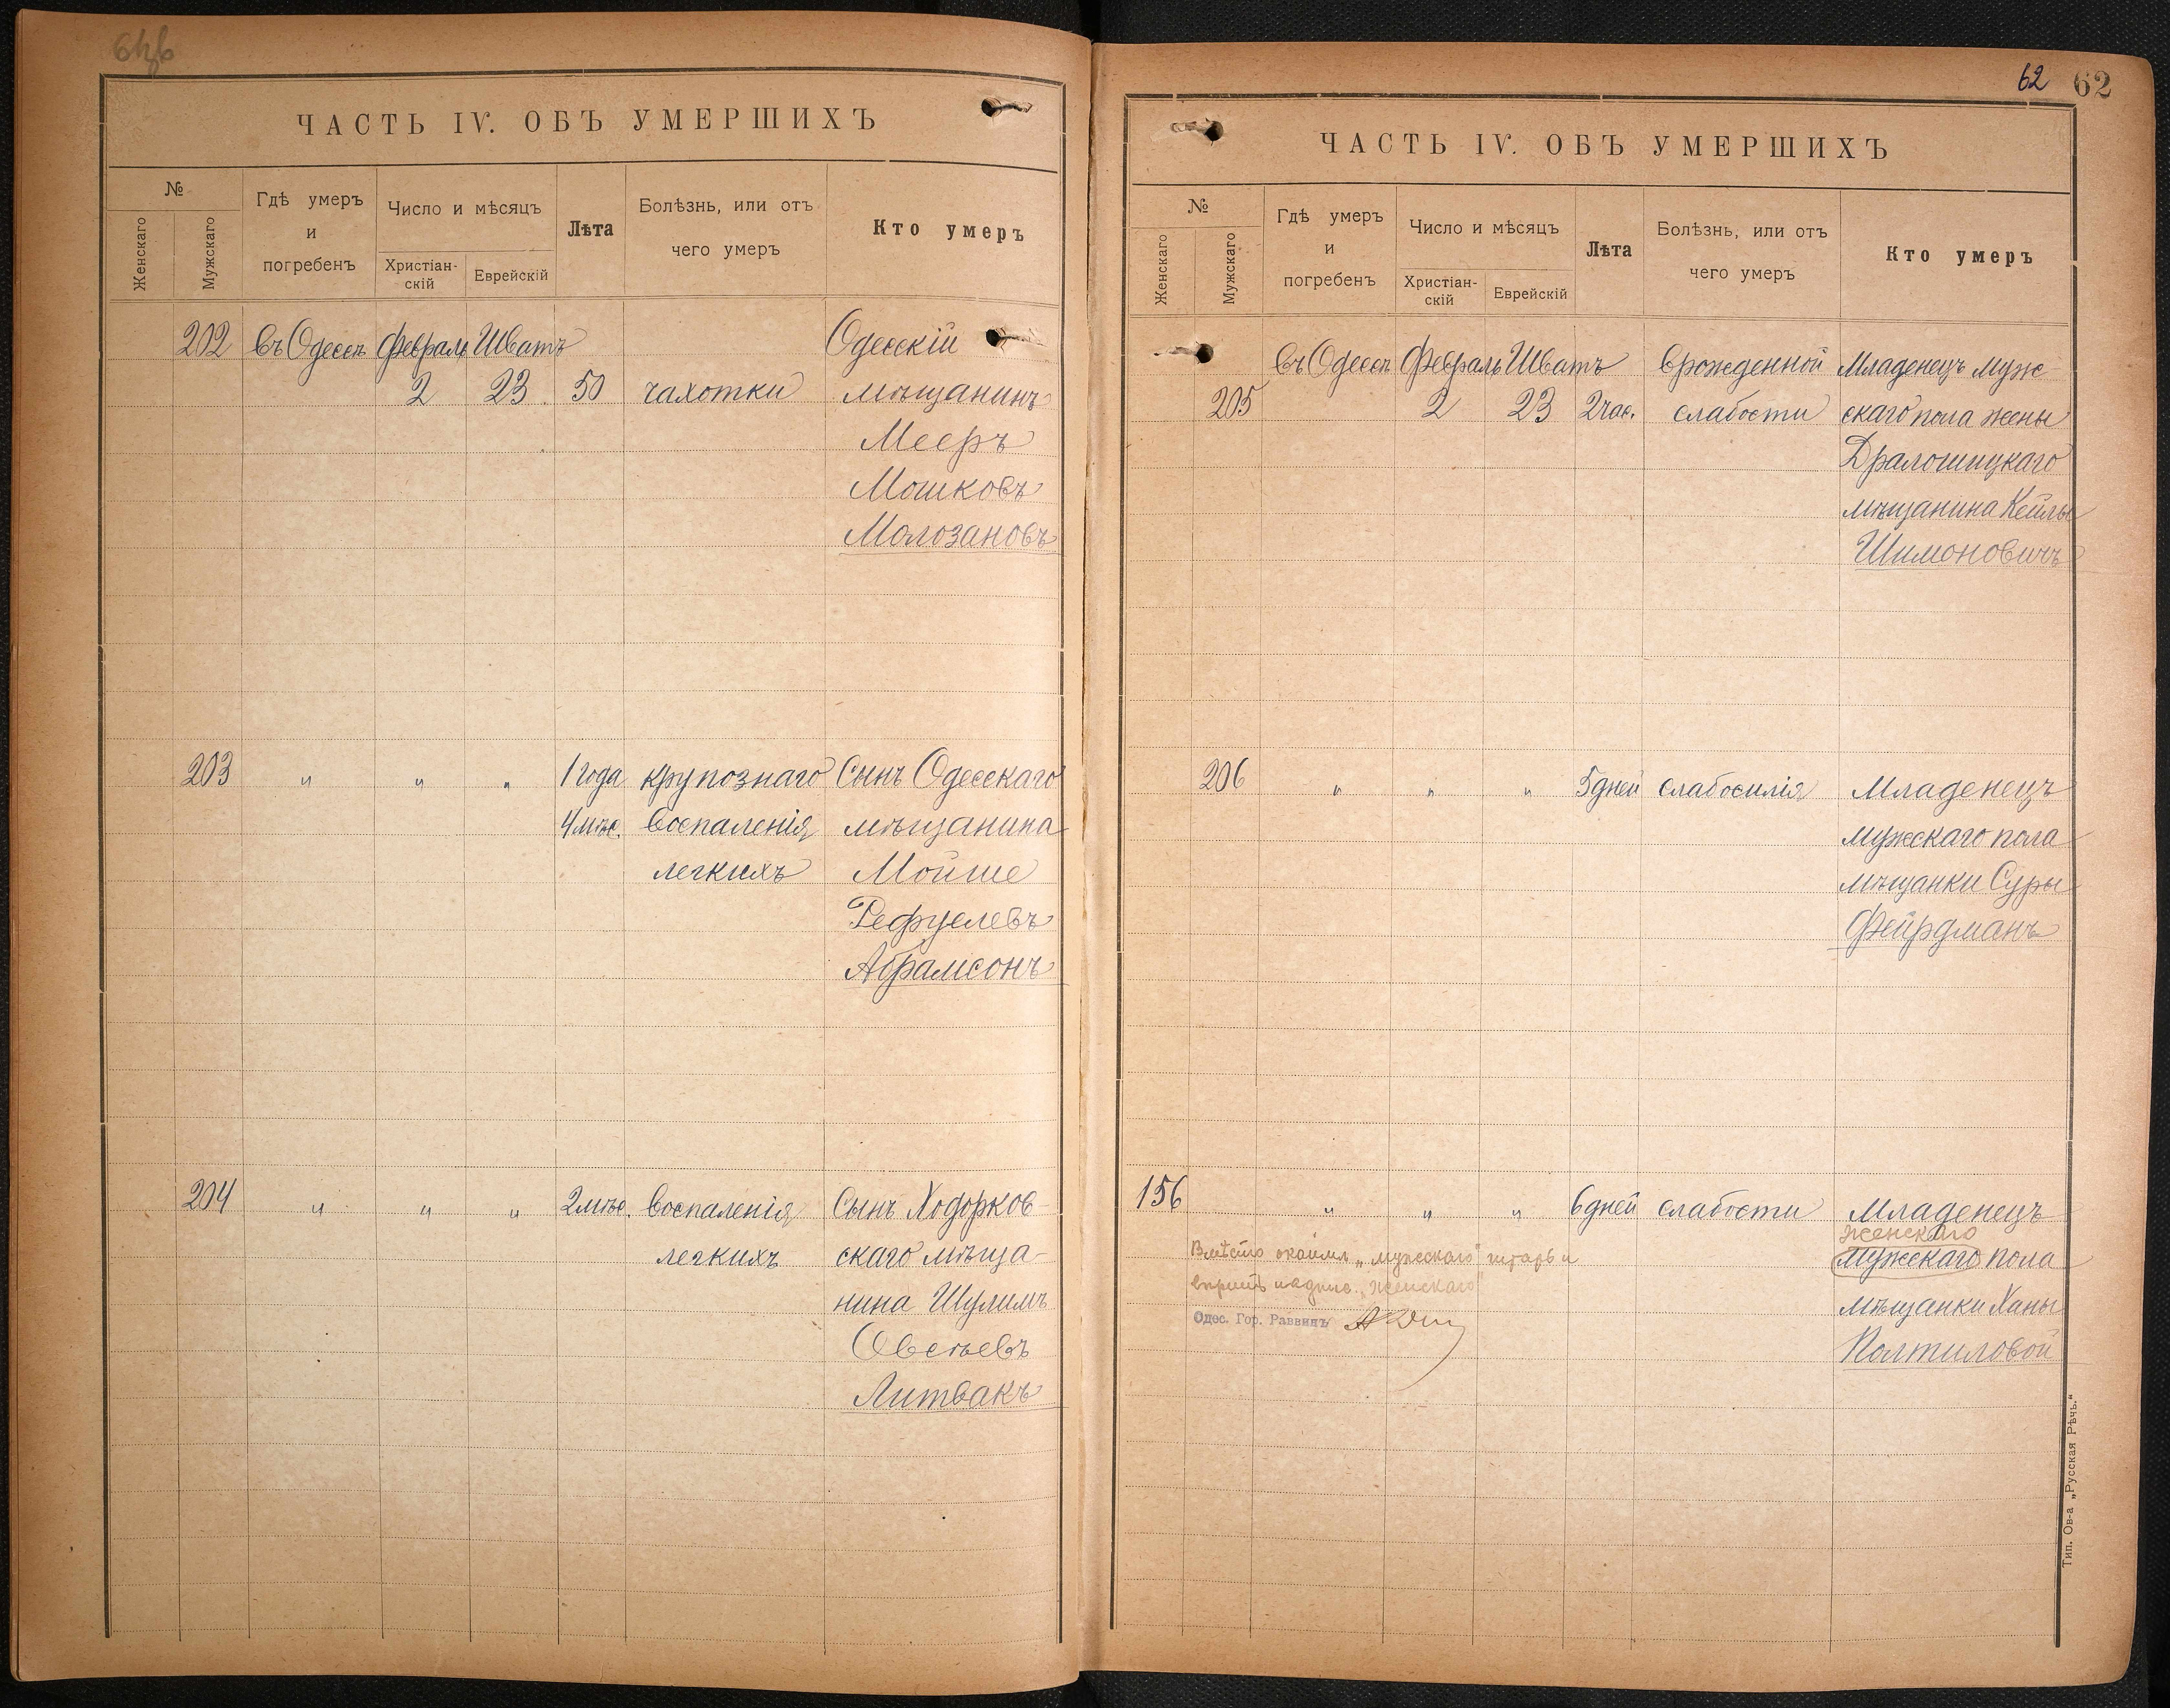 ЧАСТЬ IV. ОБЪ УМЕРШИХЪ
№
Женскаго
Мужскаго
Гдѣ умеръ
и
погребенъ
Число и мѣсяцъ
Христіан-
скій
Еврейскій
Лѣта
Болѣзнь, или отъ
чего умеръ
Кто умеръ
202 въ Одессѣ Февраль Шватъ Одесскій
2 23 50 чахотки мѣщанинъ
Мееръ
Мошковъ
Молозановъ
203 " " " 1 года крупознаго Сынъ Одесскаго
4 мѣс. воспаленія мѣщанина
легкихъ Мойше
Рефуелевъ
Абрамсонъ
204 " " " 2 мѣс. воспаленія Сынъ Ходорков-
легкихъ скаго мѣща-
нина Шулимъ
Овсѣевъ
Литвакъ
62 62
ЧАСТЬ IV. ОБЪ УМЕРШИХЪ
№
Женскаго
Мужскаго
Гдѣ умеръ
и
погребенъ
Число и мѣсяцъ
Христіан-
скій
Еврейскій
Лѣта
Болѣзнь, или отъ
чего умеръ
Кто умеръ
въ Одессѣ Февраль Шватъ врожденной Младенецъ муж-
205 2 23 2 час. слабости скаго пола жены
мѣщанина Кейлы
Шимоновичъ
206 " " " 5 дней слабосилія Младенецъ
мужскаго пола
мѣщанки Суры
Фейрдманъ
156 " " " 6 дней слабости Младенецъ
женскаго
мужскаго пола
Вмѣсто "мужскаго" читать и
"женскаго"
мѣщанки Ханы
Одес. Гор. Раввинъ
Полтиловой
Тип. Ов-а „Русская Рѣчь."